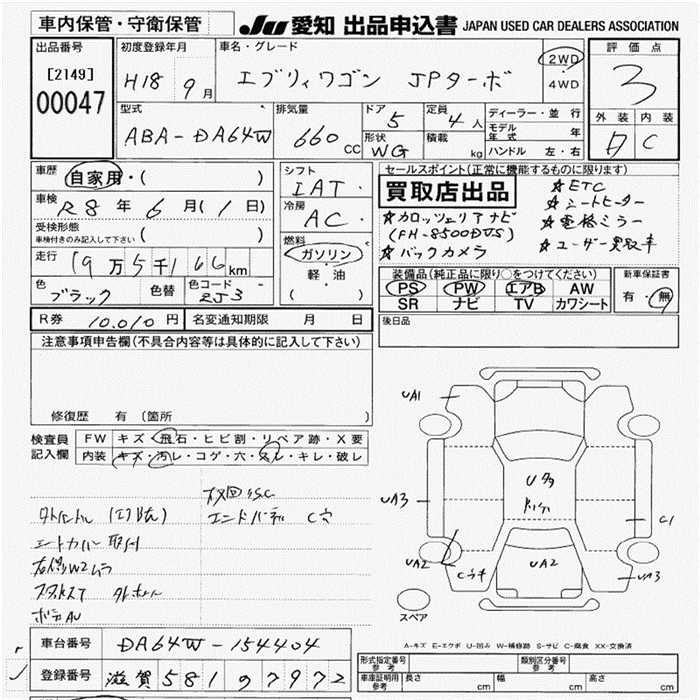 車内保管・守衛保管 JU 愛知 出品申込書 JAPAN USED CAR DEALERS ASSOCIATION
出品番号
[2149]
00047
初度登録年月
H18 9月
車名・グレード
エブリィワゴン JPターボ
2WD
4WD
評価点
3
型式
ABA-DA64W
排気量
660 CC
ドア 5
定員 4人
形状 WG
積載 kg
ディーラー・並行
モデル年式 年
ハンドル 左・右
外装 内装
A C
車歴 自家用・( )
車検 R8年 6月(1日)
受検形態
車検付きのみ記入して下さい( )
走行 19万5千166km
色 ブラック 色替 色コード ZJ3
シフト
IAT・
冷房
AC・
燃料
ガソリン
軽・油
( )
セールスポイント(正常に機能するものに限ります)
買取店出品
☆カロッツェリアナビ
(FH-8500DVS)
☆バックカメラ
☆ETC
☆シートヒーター
☆電格ミラー
☆ユーザー買取車
装備品(純正品に限り○をつけてください)
PS PW エアB AW
SR ナビ TV カワシート
新車保証書
有・無
R券 10,010円 名変通知期限 月 日
後日品
注意事項申告欄(不具合内容等は具体的に記入して下さい)
修復歴 有(箇所
検査員記入欄
FW キズ・飛石・ヒビ割・リペア跡・X要
内装 キズ・汚レ・コゲ・穴・スレ・キレ・破レ
エンドパネル C穴
シートカバー取付
ボデーAU
UA1
UA3
UA2
Cウキ
U多
UA2
C1
UA3
スペア
A-キズ E-エクボ U-凹み W-補修跡 S-サビ C-腐食 XX-交換済
車台番号 DA64W-154404
登録番号 滋賀581 ゆ7972
形式指定番号 参考
類別区分番号 参考
車庫証明用 参考 長さ cm 幅 cm 高さ cm